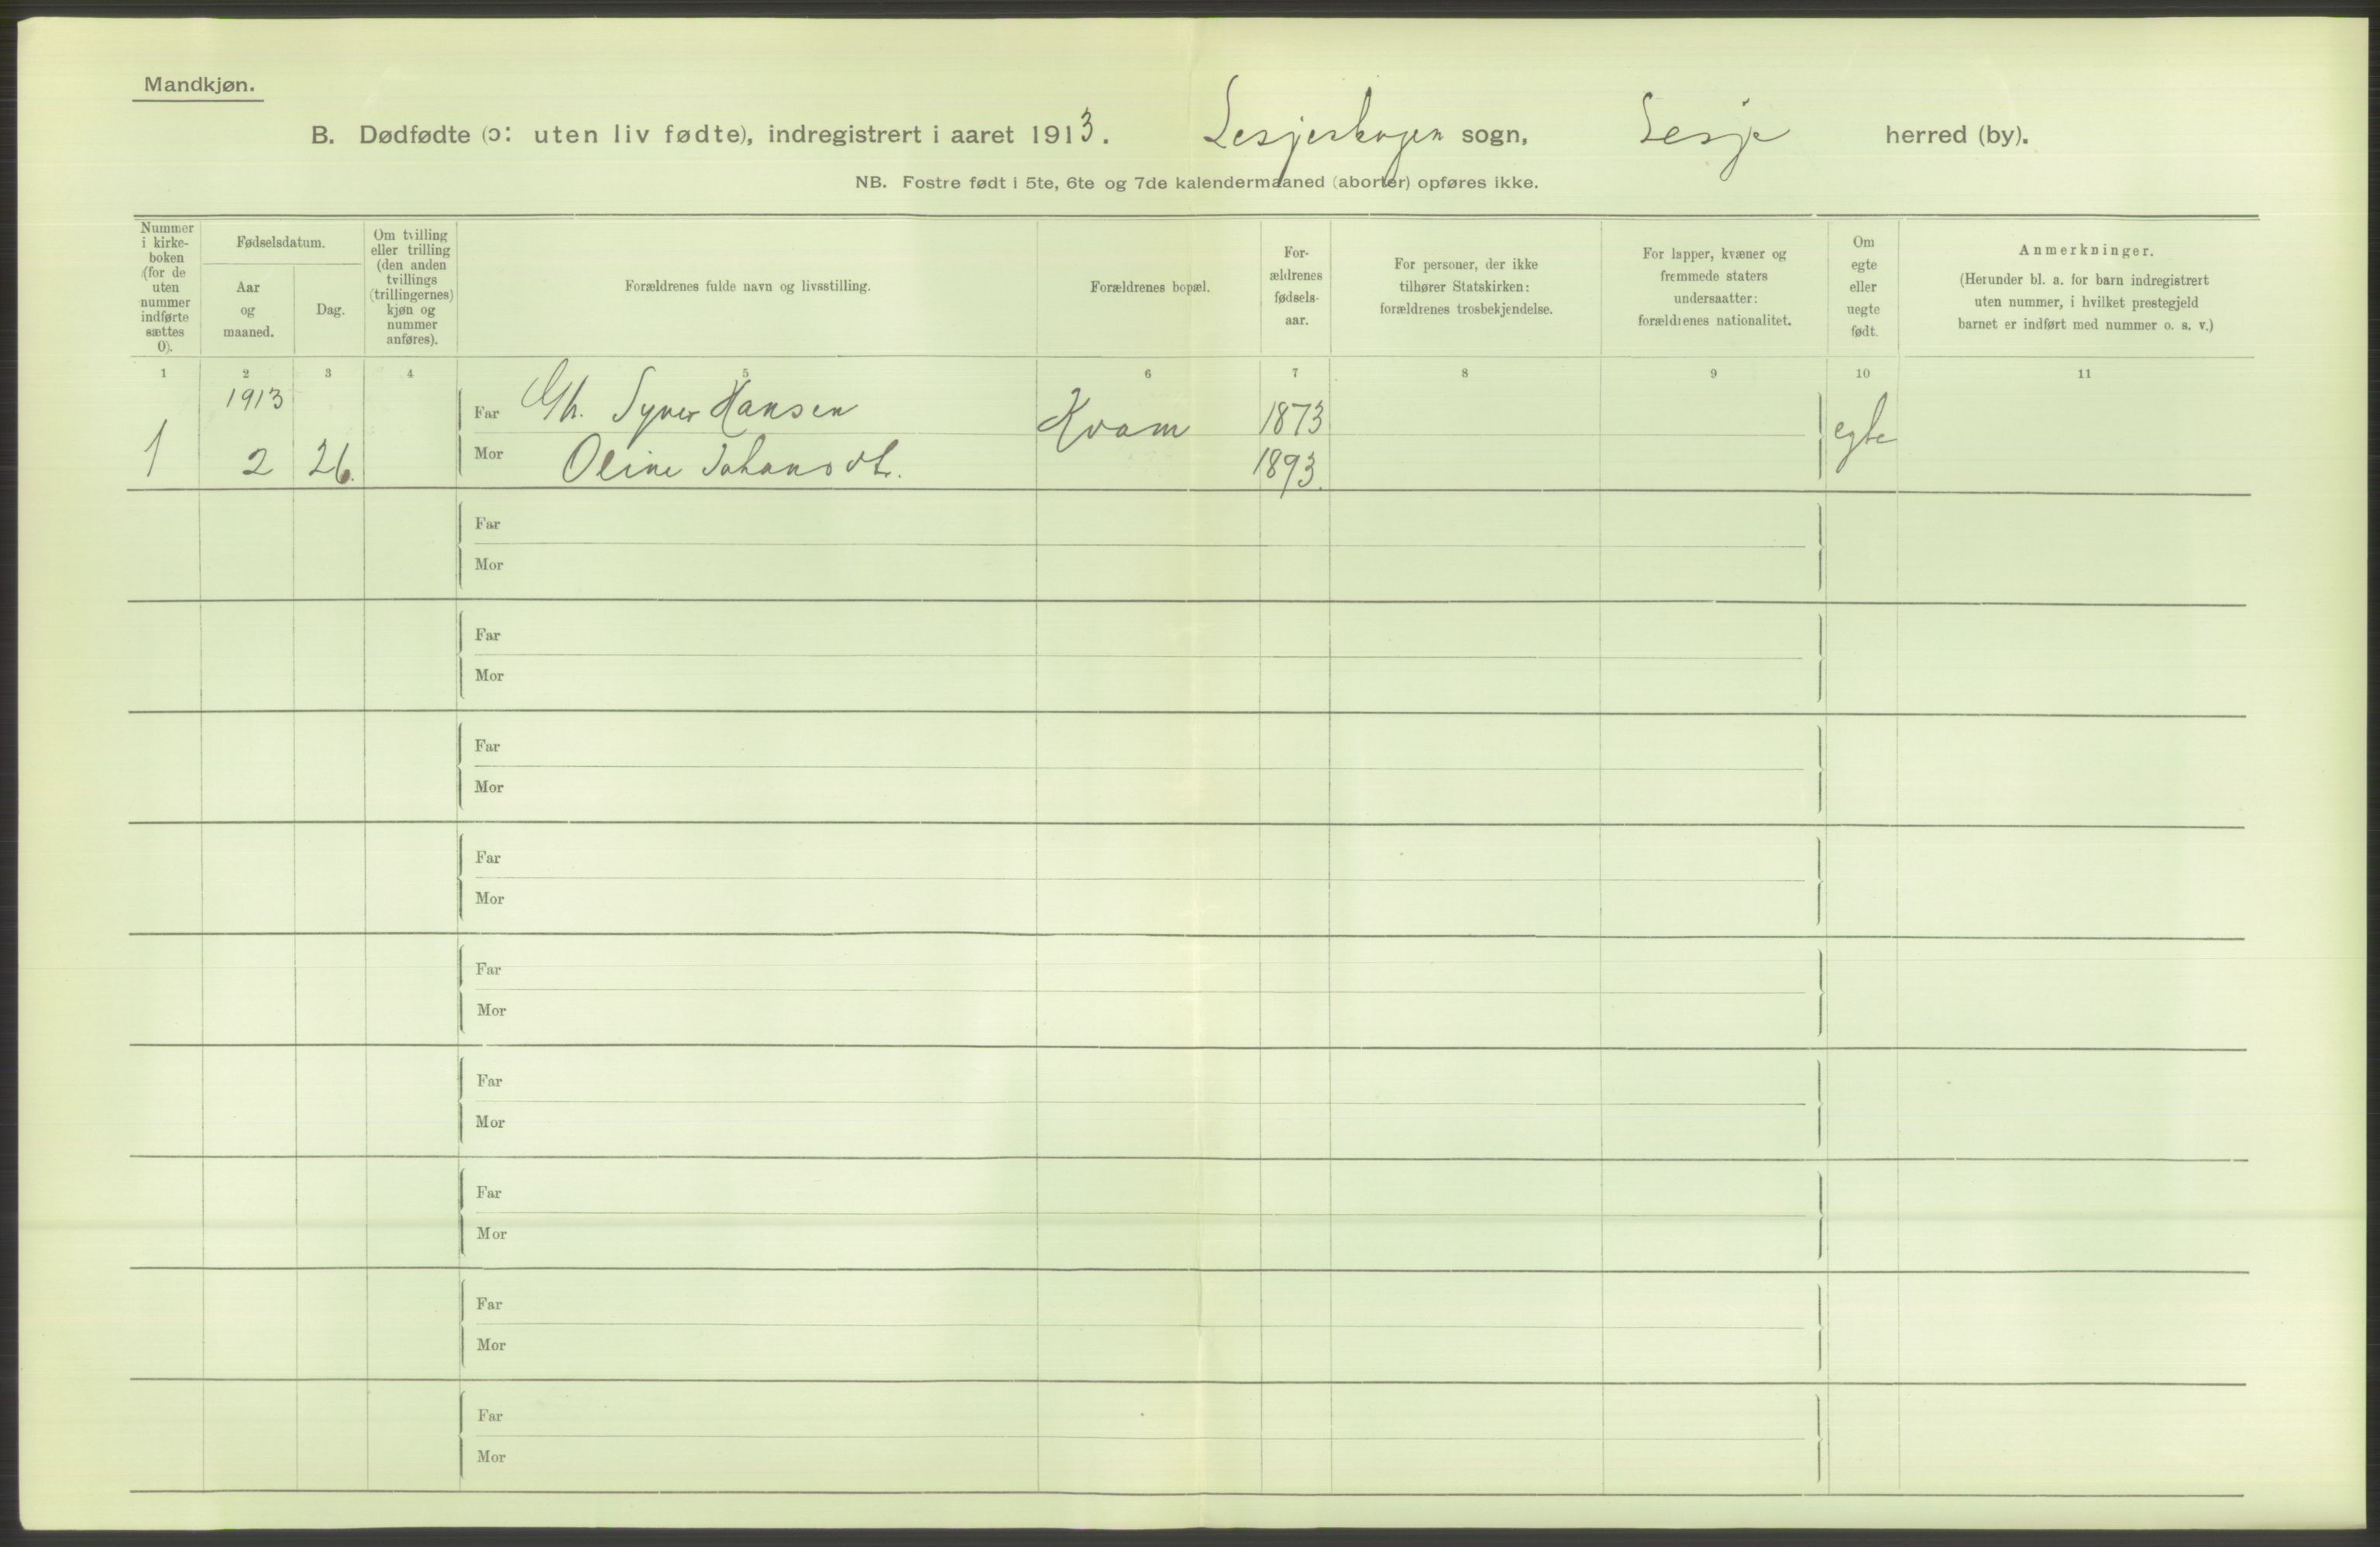 Mandkjøn.
B. Dødfødte (ɔ: uten liv fødte), indregistrert i aaret 1913. Lesjeskogen sogn, Lesje herred (by).
NB. Fostre født i 5te, 6te og 7de kalendermaaned (aborter) opføres ikke.
Nummer
i kirke-
boken
(for de
uten
nummer
indførte
sættes
0).
Fødselsdatum.
Aar
og
maaned.
Dag.
Om tvilling
eller trilling
(den anden
tvillings
(trillingernes)
kjøn og
nummer
anføres).
Forældrenes fulde navn og livsstilling.
Forældrenes bopæl.
For-
ældrenes
fødsels-
aar.
For personer, der ikke
tilhører Statskirken:
forældrenes trosbekjendelse.
For lapper, kvæner og
fremmede staters
undersaatter:
forældrenes nationalitet.
Om
egte
eller
uegte
født.
Anmerkninger.
(Herunder bl. a. for barn indregistrert
uten nummer, i hvilket prestegjeld
barnet er indført med nummer o. s. v.)
1 2 3 4 5 6 7 8 9 10 11
1913
Far Gh. Syver Hansen Kvam 1873 egte
1 2 26. Mor Oline Johansdt. 1893.
Far
Mor
Far
Mor
Far
Mor
Far
Mor
Far
Mor
Far
Mor
Far
Mor
Far
Mor
Far
Mor